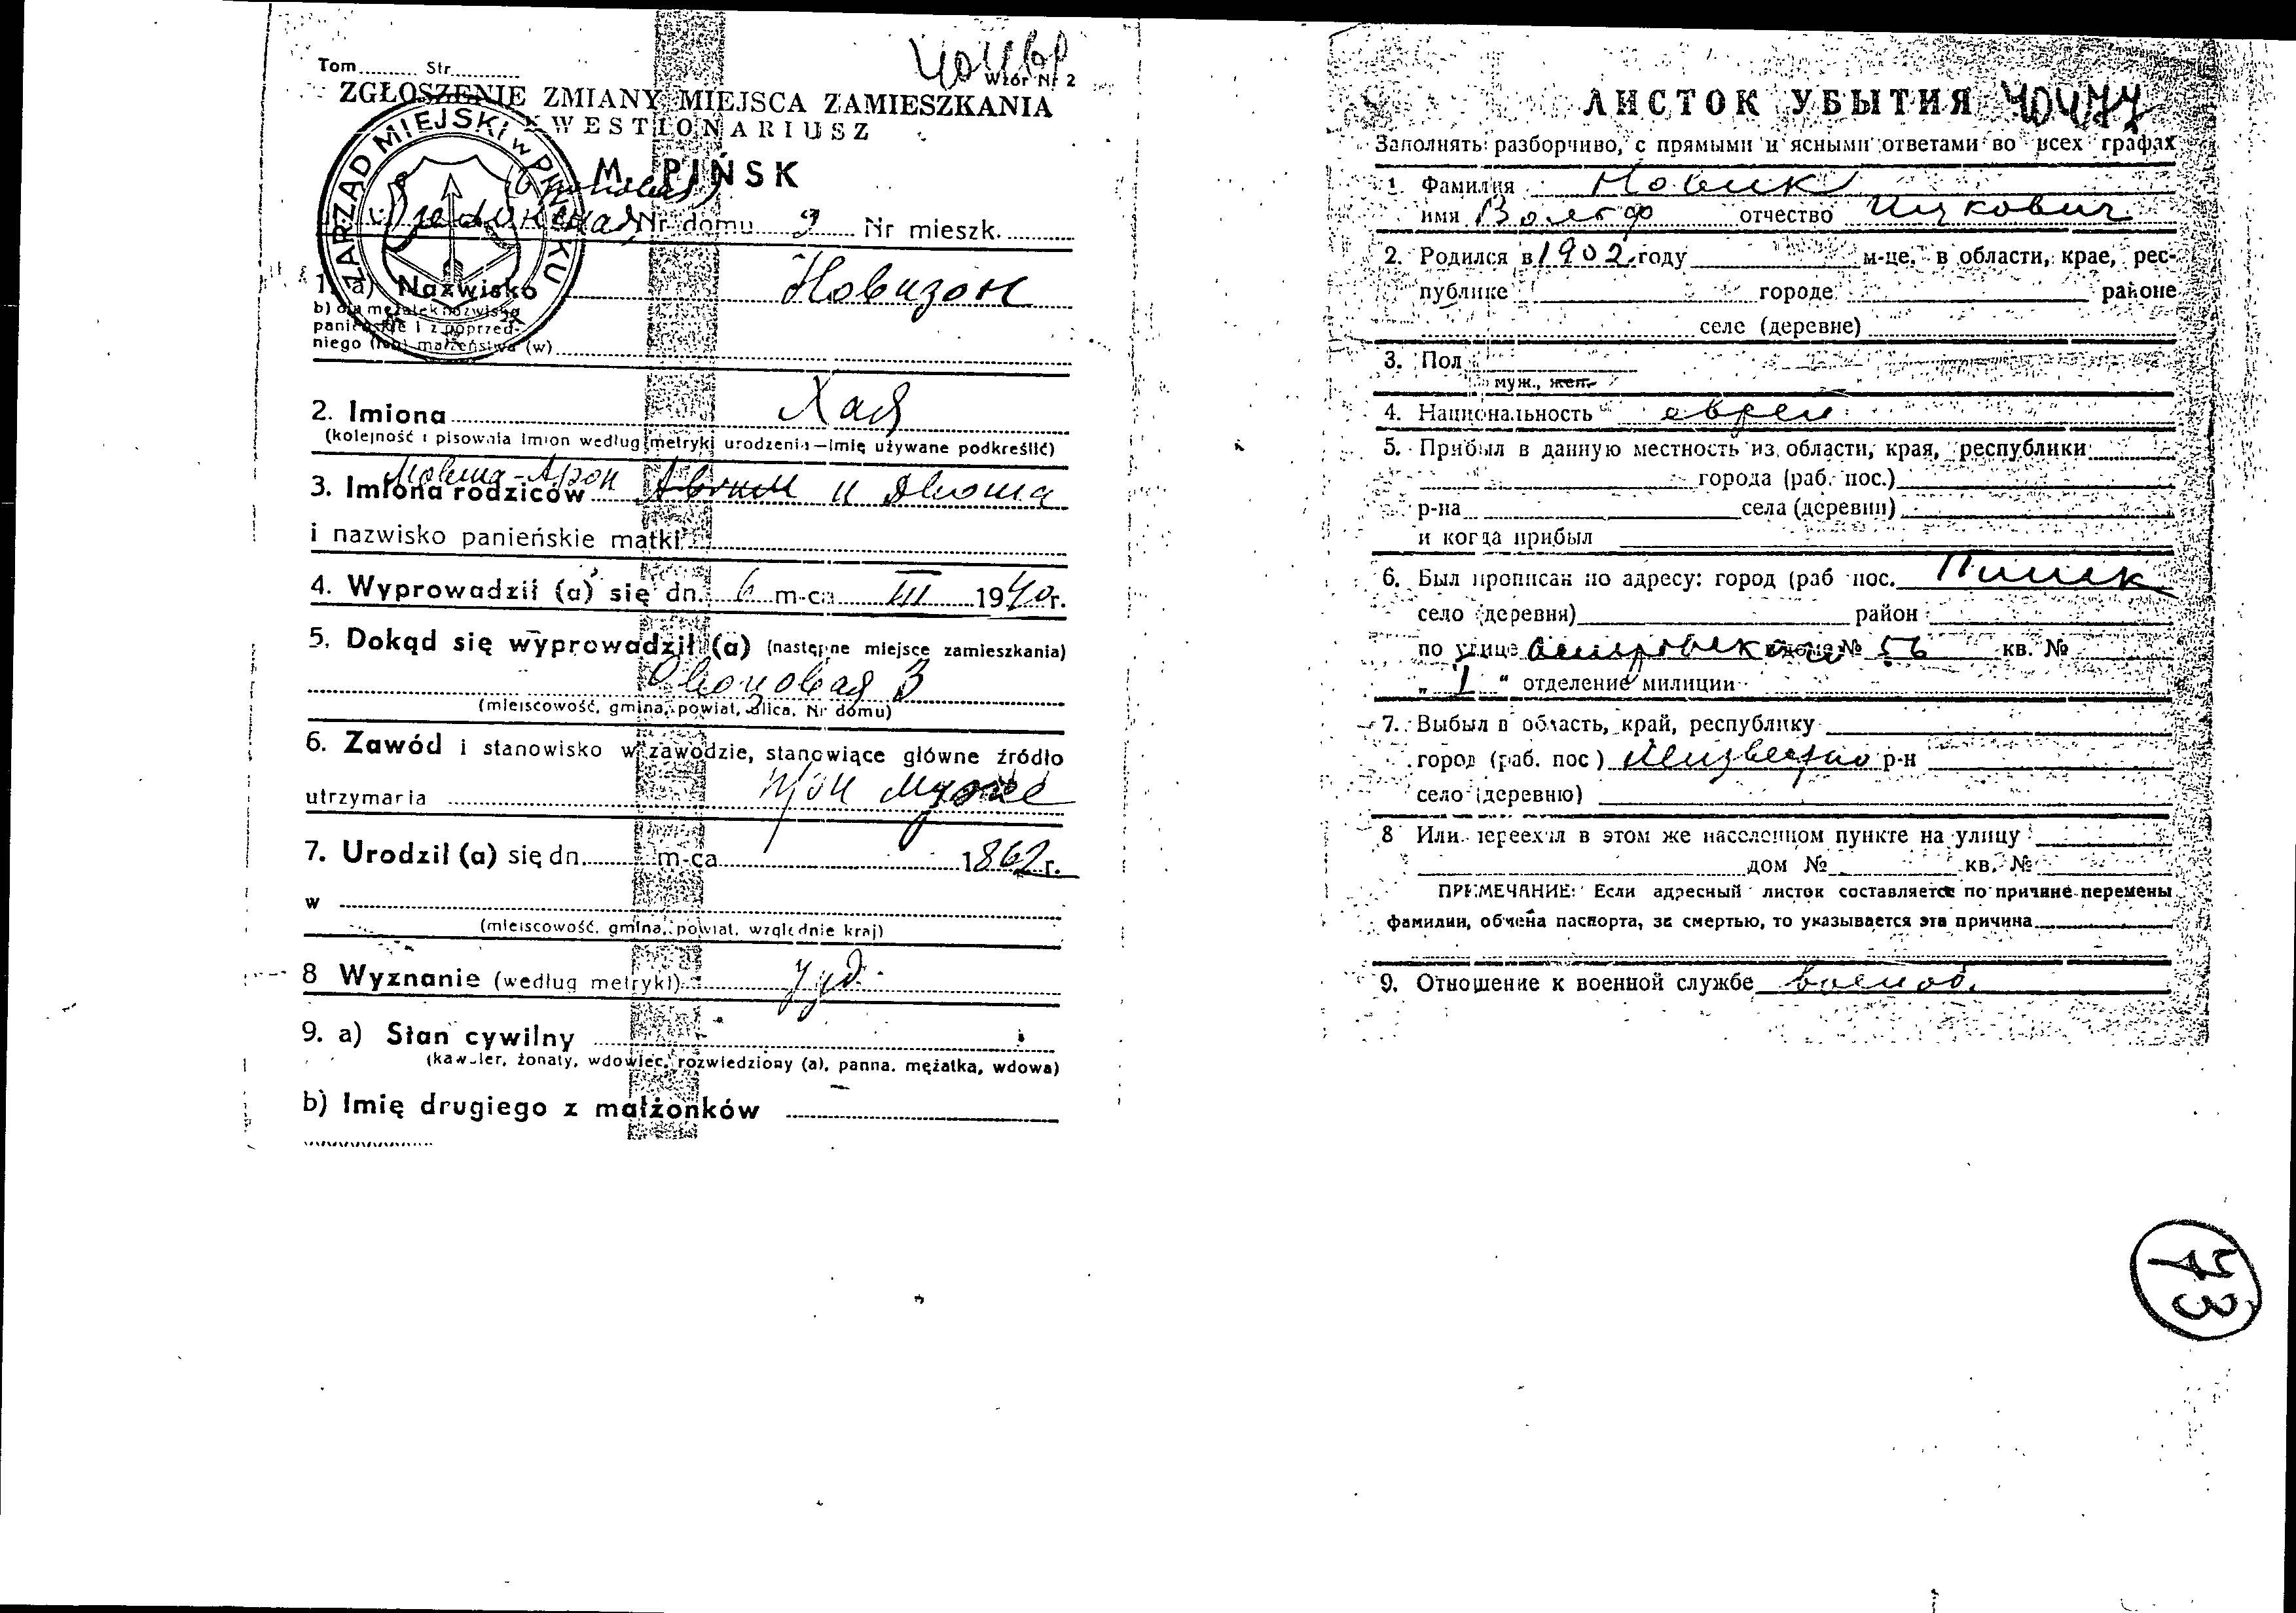 Tom ......... Str. .........
Wzór Nr 2
ZGŁOSZENIE ZMIANY MIEJSCA ZAMIESZKANIA
KWESTIONARIUSZ
M. PIŃSK
ZARZĄD MIEJSKI w PIŃSKU
Nr domu 3 Nr mieszk. .........
1. a) Nazwisko Новизон
b) dla mężatek nazwisko
panieńskie i z poprzed-
niego (ich) małżeństwa (w)
2. Imiona Хая
(kolejność i pisownia imion według metryki urodzenia—imię używane podkreślić)
Мовша-Арон
3. Imiona rodziców и Двоша
i nazwisko panieńskie matki
4. Wyprowadził (a) się dn. 6 m-ca III 1940 r.
5. Dokąd się wyprowadził (a) (następne miejsce zamieszkania)
3
(miejscowość, gmina, powiat, ulica, Nr domu)
6. Zawód i stanowisko w zawodzie, stanowiące główne źródło
utrzymania при муже
7. Urodził (a) się dn. m-ca 1862 r.
w
(miejscowość, gmina, powiat, względnie kraj)
8 Wyznanie (według metryki) Иуд.
9. a) Stan cywilny
(kawaler, żonaty, wdowiec, rozwiedziony (a), panna, mężatka, wdowa)
b) Imię drugiego z małżonków
ЛИСТОК УБЫТИЯ
Заполнять разборчиво, с прямыми и ясными ответами во всех графах
1. Фамилия Новик
имя Вольф отчество Ицкович
2. Родился в 1902 году м-це, в области, крае, рес-
публике городе районе
селе (деревне)
3. Пол
муж., жен.
4. Национальность еврей
5. Прибыл в данную местность из области, края, республики
города (раб. пос.)
р-на села (деревни)
и когда прибыл
6. Был прописан по адресу: город (раб пос. Пинск
село (деревня) район
по улице Островского дом № 56 кв. №
„ I “ отделение милиции
7. Выбыл в область, край, республику
город (раб. пос) Неизвестно р-н
село (деревню)
8 Или переехал в этом же населенном пункте на улицу
дом № кв. №
ПРИМЕЧАНИЕ: Если адресный листок составляется по причине перемены
фамилии, обмена паспорта, за смертью, то указывается эта причина
9. Отношение к военной службе военоб.
73